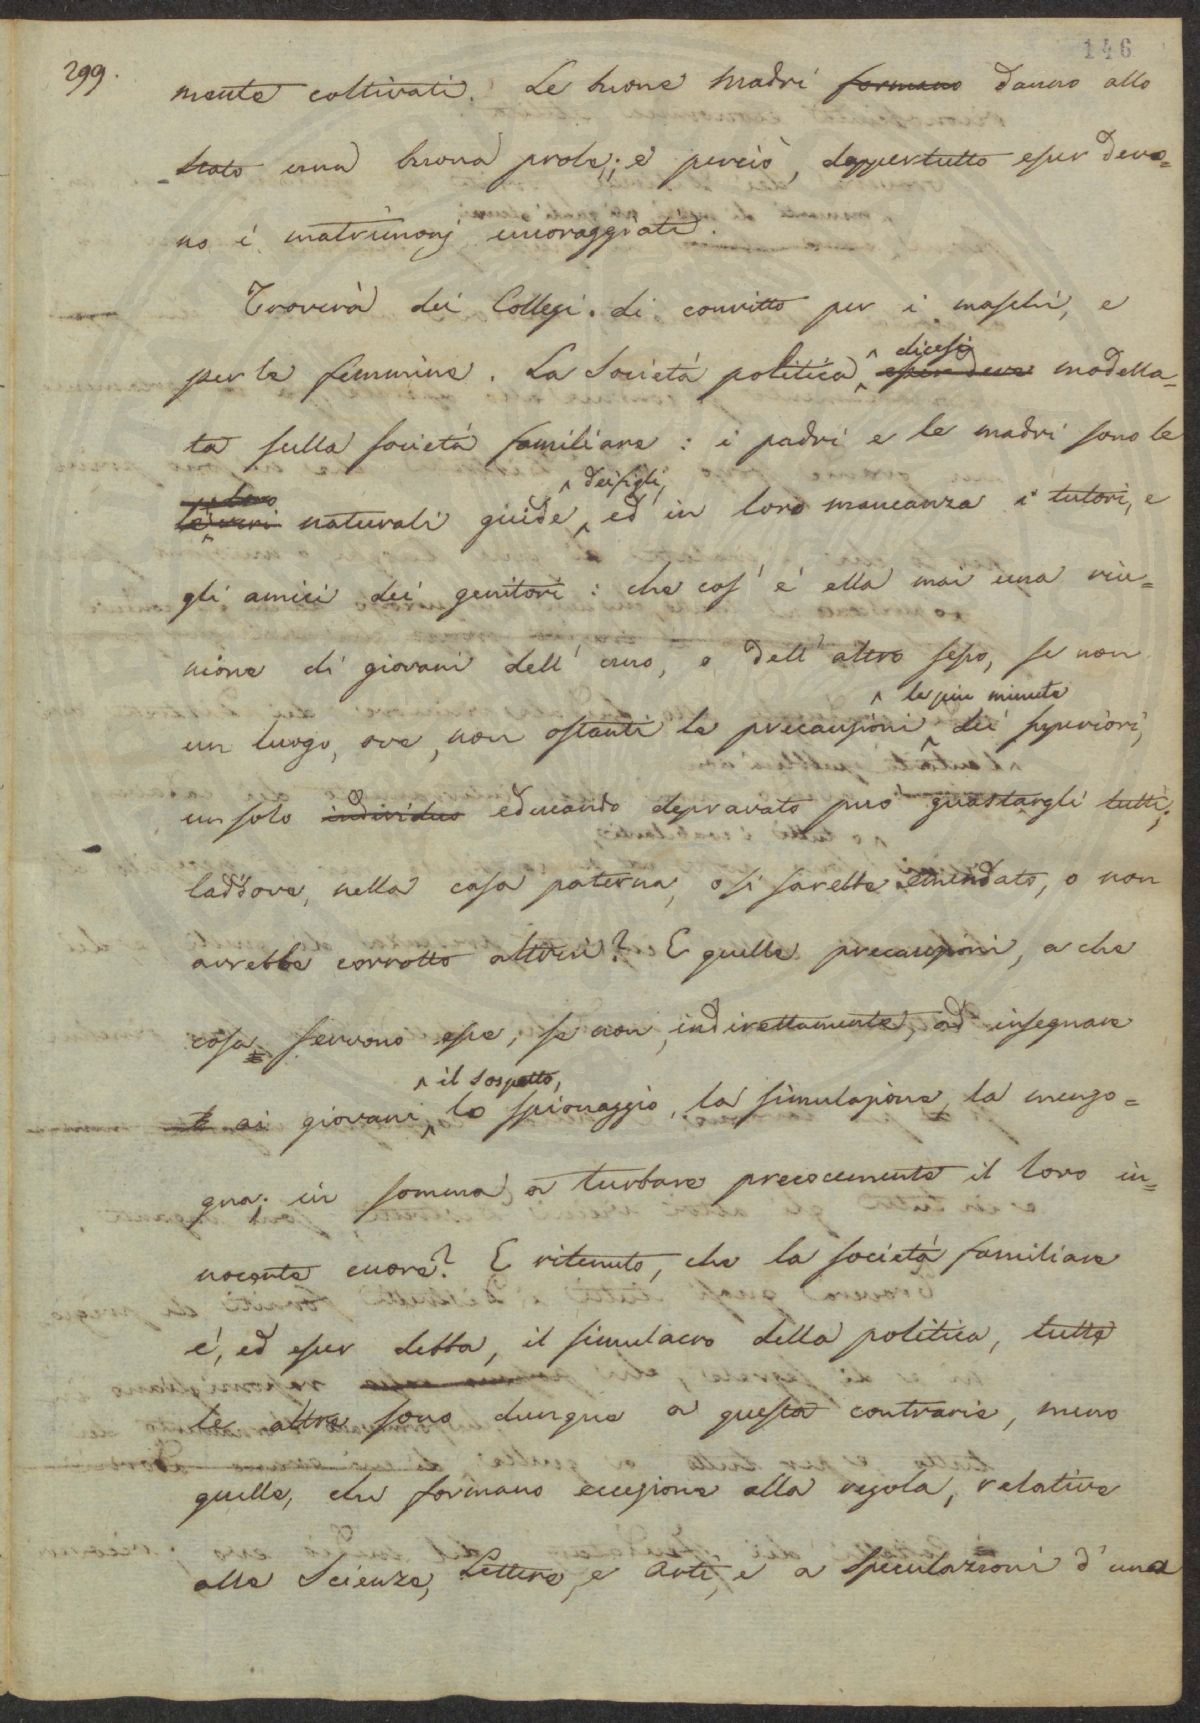 299.
146
mente coltivati. Le buone Madri formano danno allo
Stato una buona prole; e perciò, dappertutto esser devo=
no i matrimonj incoraggiati.
Troverà dei Collegi di convitto per i maschi, e
per le femmine. La Società politica esser deve ^ dicesi modella=
ta sulla società familiare: i padri e le madri sono le
le veri naturali guide ^ dei figli, ed in loro mancanza i tutori, e
gli amici dei genitori: che cos' è ella mai una riu=
nione di giovani dell' uno, o dell' altro sesso, se non
un luogo, ove, non ostanti le precauzioni ^ le più minute dei superiori,
un solo individuo educando depravato può guastargli tutti;
laddove, nella casa paterna, o si sarebbe emendato, o non
avrebbe corrotto altrui? E quelle precauzioni, a che
cosa servono esse, se non, indirettamente, ad insegnare
ai giovani ^ il sospetto, lo spionaggio, la simulazione, la menzo=
gna; in somma a turbare precocemente il loro in=
nocente cuore? E ritenuto, che la società familiare
è, ed esser debba, il simulacro della politica, tutte
le altre sono dunque a questa contrarie, meno
quelle, che formano eccezione alla regola, relative
alle Scienze, Lettere, e Arti, e a speculazioni d'una